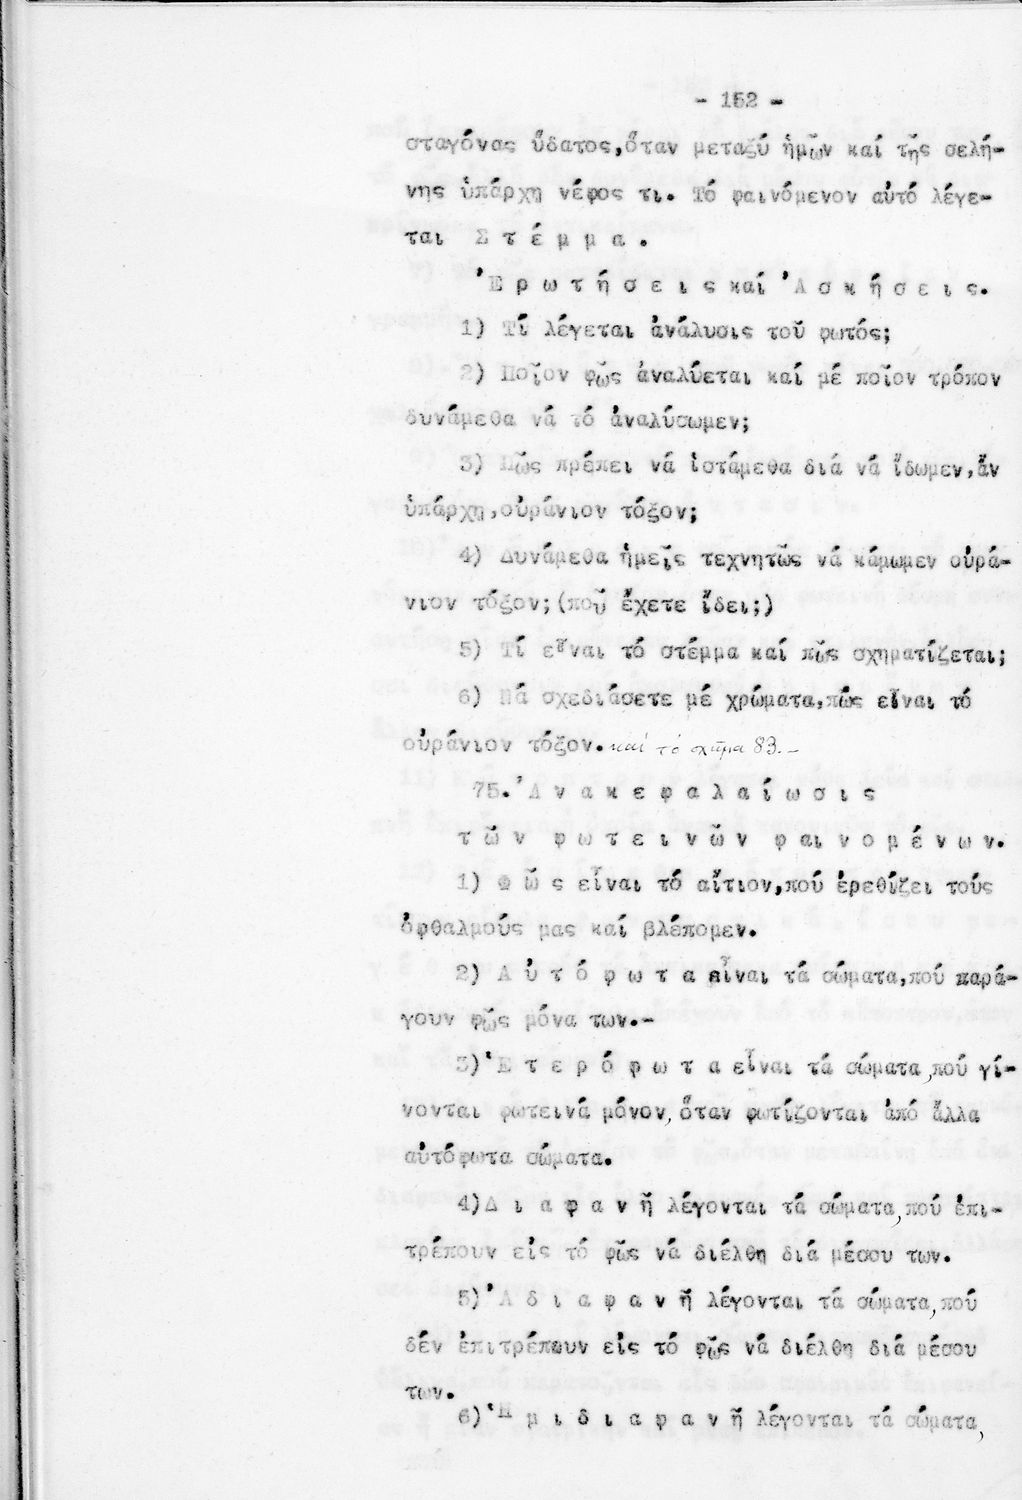 - 152 -
σταγόνας ὕδατος,ὅταν μεταξύ ἡμῶν καί τῆς σελή-
νης ὑπάρχη νέφος τι. Τό φαινόμενον αὐτό λέγε-
ται Σ τ έ μ μ α .
Ἐ ρ ω τ ή σ ε ι ς καί Ἀ σ κ ή σ ε ι ς.
1) Τί λέγεται ἀνάλυσις τοῦ φωτός;
2) Ποῖον φῶς ἀναλύεται καί μέ ποῖον τρόπον
δυνάμεθα νά τό ἀναλύσωμεν;
3) Πῶς πρέπει νά ἱστάμεθα διά νά ἴδωμεν,ἄν
ὑπάρχη,οὐράνιον τόξον;
4) Δυνάμεθα ἡμεῖς τεχνητῶς νά κάμωμεν οὐρά-
νιον τόξον;(ποῦ ἔχετε ἴδει;)
5) Τί εἶναι τό στέμμα καί πῶς σχηματίζεται;
6) Νά σχεδιάσετε μέ χρώματα,πῶς εἶναι τό
οὐράνιον τόξον. καί τό σχῆμα 83.-
75. Ἀ ν α κ ε φ α λ α ί ω σ ι ς
τ ῶ ν φ ω τ ε ι ν ῶ ν φ αι ν ο μ έ ν ω ν.
1) Φ ῶ ς εἶναι τό αἴτιον,πού ἐρεθίζει τούς
ὀφθαλμούς μας καί βλέπομεν.
2) Α ὐ τ ό φ ω τ α εἶναι τά σώματα,πού παρά-
γουν φῶς μόνα των.-
3) Ἑ τ ε ρ ό φ ω τ α εἶναι τά σώματα,πού γί-
νονται φωτεινά μόνον,ὅταν φωτίζονται ἀπό ἄλλα
αὐτόφωτα σώματα.
4)Δ ι α φ α ν ῆ λέγονται τά σώματα,πού ἐπι-
τρέπουν εἰς τό φῶς νά διέλθη διά μέσου των.
5) Ἀ δ ι α φ α ν ῆ λέγονται τά σώματα,πού
δέν ἐπιτρέπουν εἰς τό φῶς νά διέλθη διά μέσου
των.
6) Ἡ μ ι δ ι α φ α ν ῆ λέγονται τά σώματα,